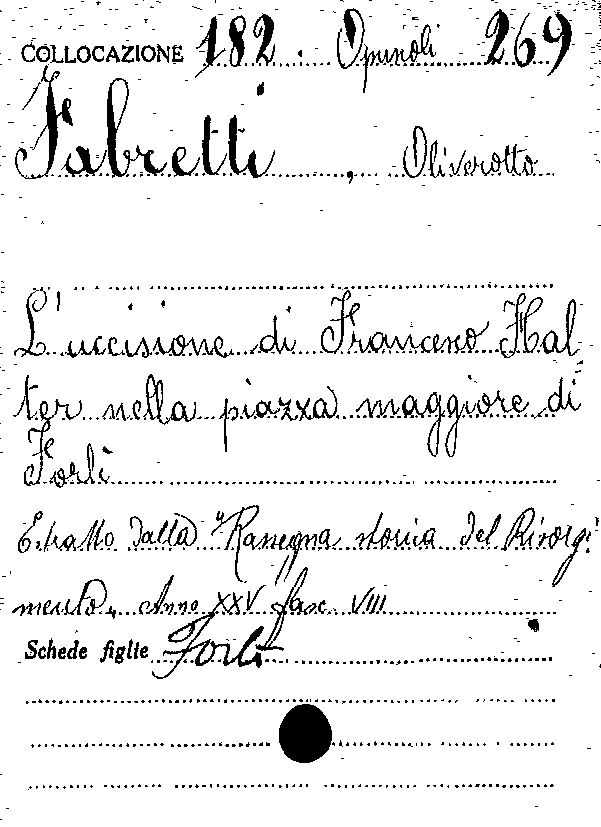 COLLOCAZIONE 182. Opuscoli 269
Fabretti, Oliverotto
L'uccisione di Francesco Hal
ter nella piazza maggiore di
Forlì
Estratto dalla "Rassegna storica del Risorgi
mento, Anno XXV fasc. VIII
Schede figlie Forlì